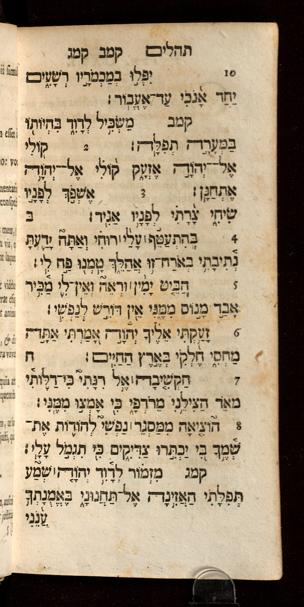 תהלים קמב קמג
10 יִפְּלוּ בְמַכְמֹרָיו רְשָׁעִים
יַחַד אָנֹכִי עַד־אֶעֱבוֹר׃
קמב מַשְׂכִּיל לְדָוִד בִּהְיוֹתוֹ
בַמְּעָרָה תְפִלָּה׃ 2 קוֹלִי
אֶל־יְהוָה אֶזְעָק קוֹלִי אֶל־יְהוָה
אֶתְחַנָּן׃ 3 אֶשְׁפֹּךְ לְפָנָיו
שִׂיחִי צָרָתִי לְפָנָיו אַגִּיד׃ ב
4 בְּהִתְעַטֵּף עָלַי ׀ רוּחִי וְאַתָּה יָדַעְתָּ
נְתִיבָתִי בְּאֹרַח־זוּ אֲהַלֵּךְ טָמְנוּ פַח לִי׃
5 הַבֵּיט יָמִין ׀ וּרְאֵה וְאֵין־לִי מַכִּיר
אָבַד מָנוֹס מִמֶּנִּי אֵין דּוֹרֵשׁ לְנַפְשִׁי׃
6 זָעַקְתִּי אֵלֶיךָ יְהוָה אָמַרְתִּי אַתָּה
מַחְסִי חֶלְקִי בְּאֶרֶץ הַחַיִּים׃ ח
7 הַקְשִׁיבָה ׀ אֶל רִנָּתִי כִּי־דַלּוֹתִי
מְאֹד הַצִּילֵנִי מֵרֹדְפַי כִּי אָמְצוּ מִמֶּנִּי׃
8 הוֹצִיאָה מִמַּסְגֵּר ׀ נַפְשִׁי לְהוֹדוֹת אֶת־
שְׁמֶךָ בִּי יַכְתִּרוּ צַדִּיקִים כִּי תִגְמֹל עָלָי׃
קמג מִזְמוֹר לְדָוִד יְהוָה ׀ שְׁמַע
תְּפִלָּתִי הַאֲזִינָה אֶל־תַּחֲנוּנַי בֶּאֱמֻנָתְךָ
עֲנֵנִי